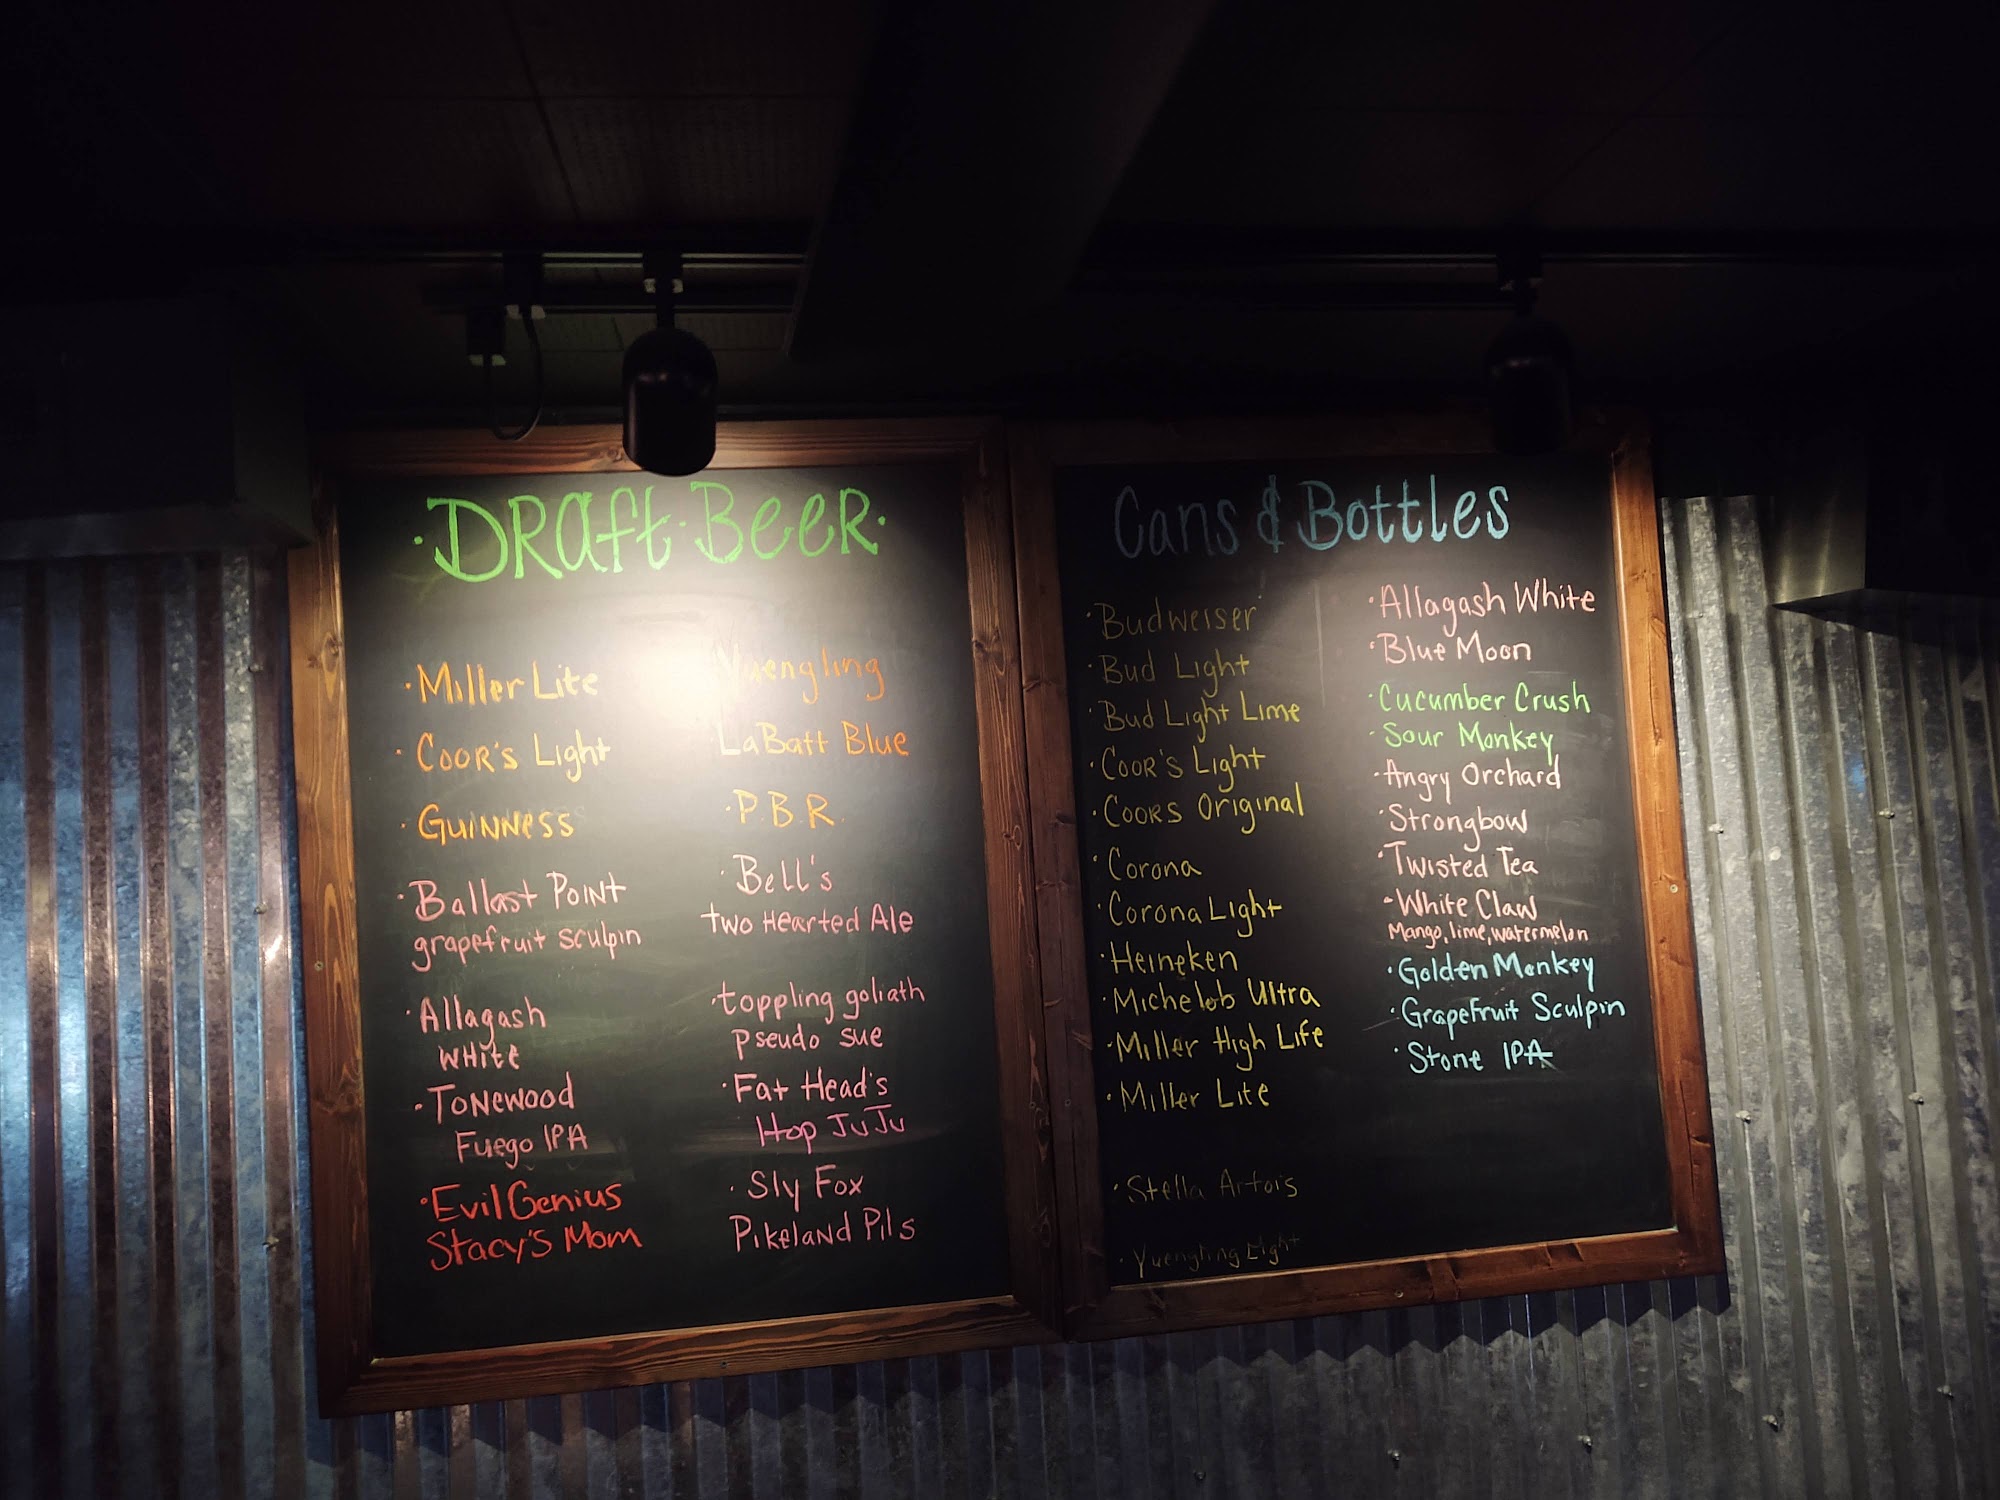 ·DRaft·Beer·
·Miller Lite
·Coor's Light
·Guinness
·Ballast Point
grapefruit sculpin
·Allagash
White
·Tonewood
Fuego IPA
·Evil Genius
Stacy's Mom
Yuengling
·LaBatt Blue
·P.B.R.
·Bell's
two Hearted Ale
·toppling goliath
pseudo sue
·Fat Head's
Hop JuJu
·Sly Fox
Pikeland Pils
Cans & Bottles
·Budweiser
·Bud Light
·Bud Light Lime
·Coor's Light
·Coors Original
·Corona
·Corona Light
·Heineken
·Michelob Ultra
·Miller High Life
·Miller Lite
·Stella Artois
·Yuengling Light
·Allagash White
·Blue Moon
·Cucumber Crush
·Sour Monkey
·Angry Orchard
·Strongbow
·Twisted Tea
·White Claw
Mango, lime, watermelon
·Golden Monkey
·Grapefruit Sculpin
·Stone IPA